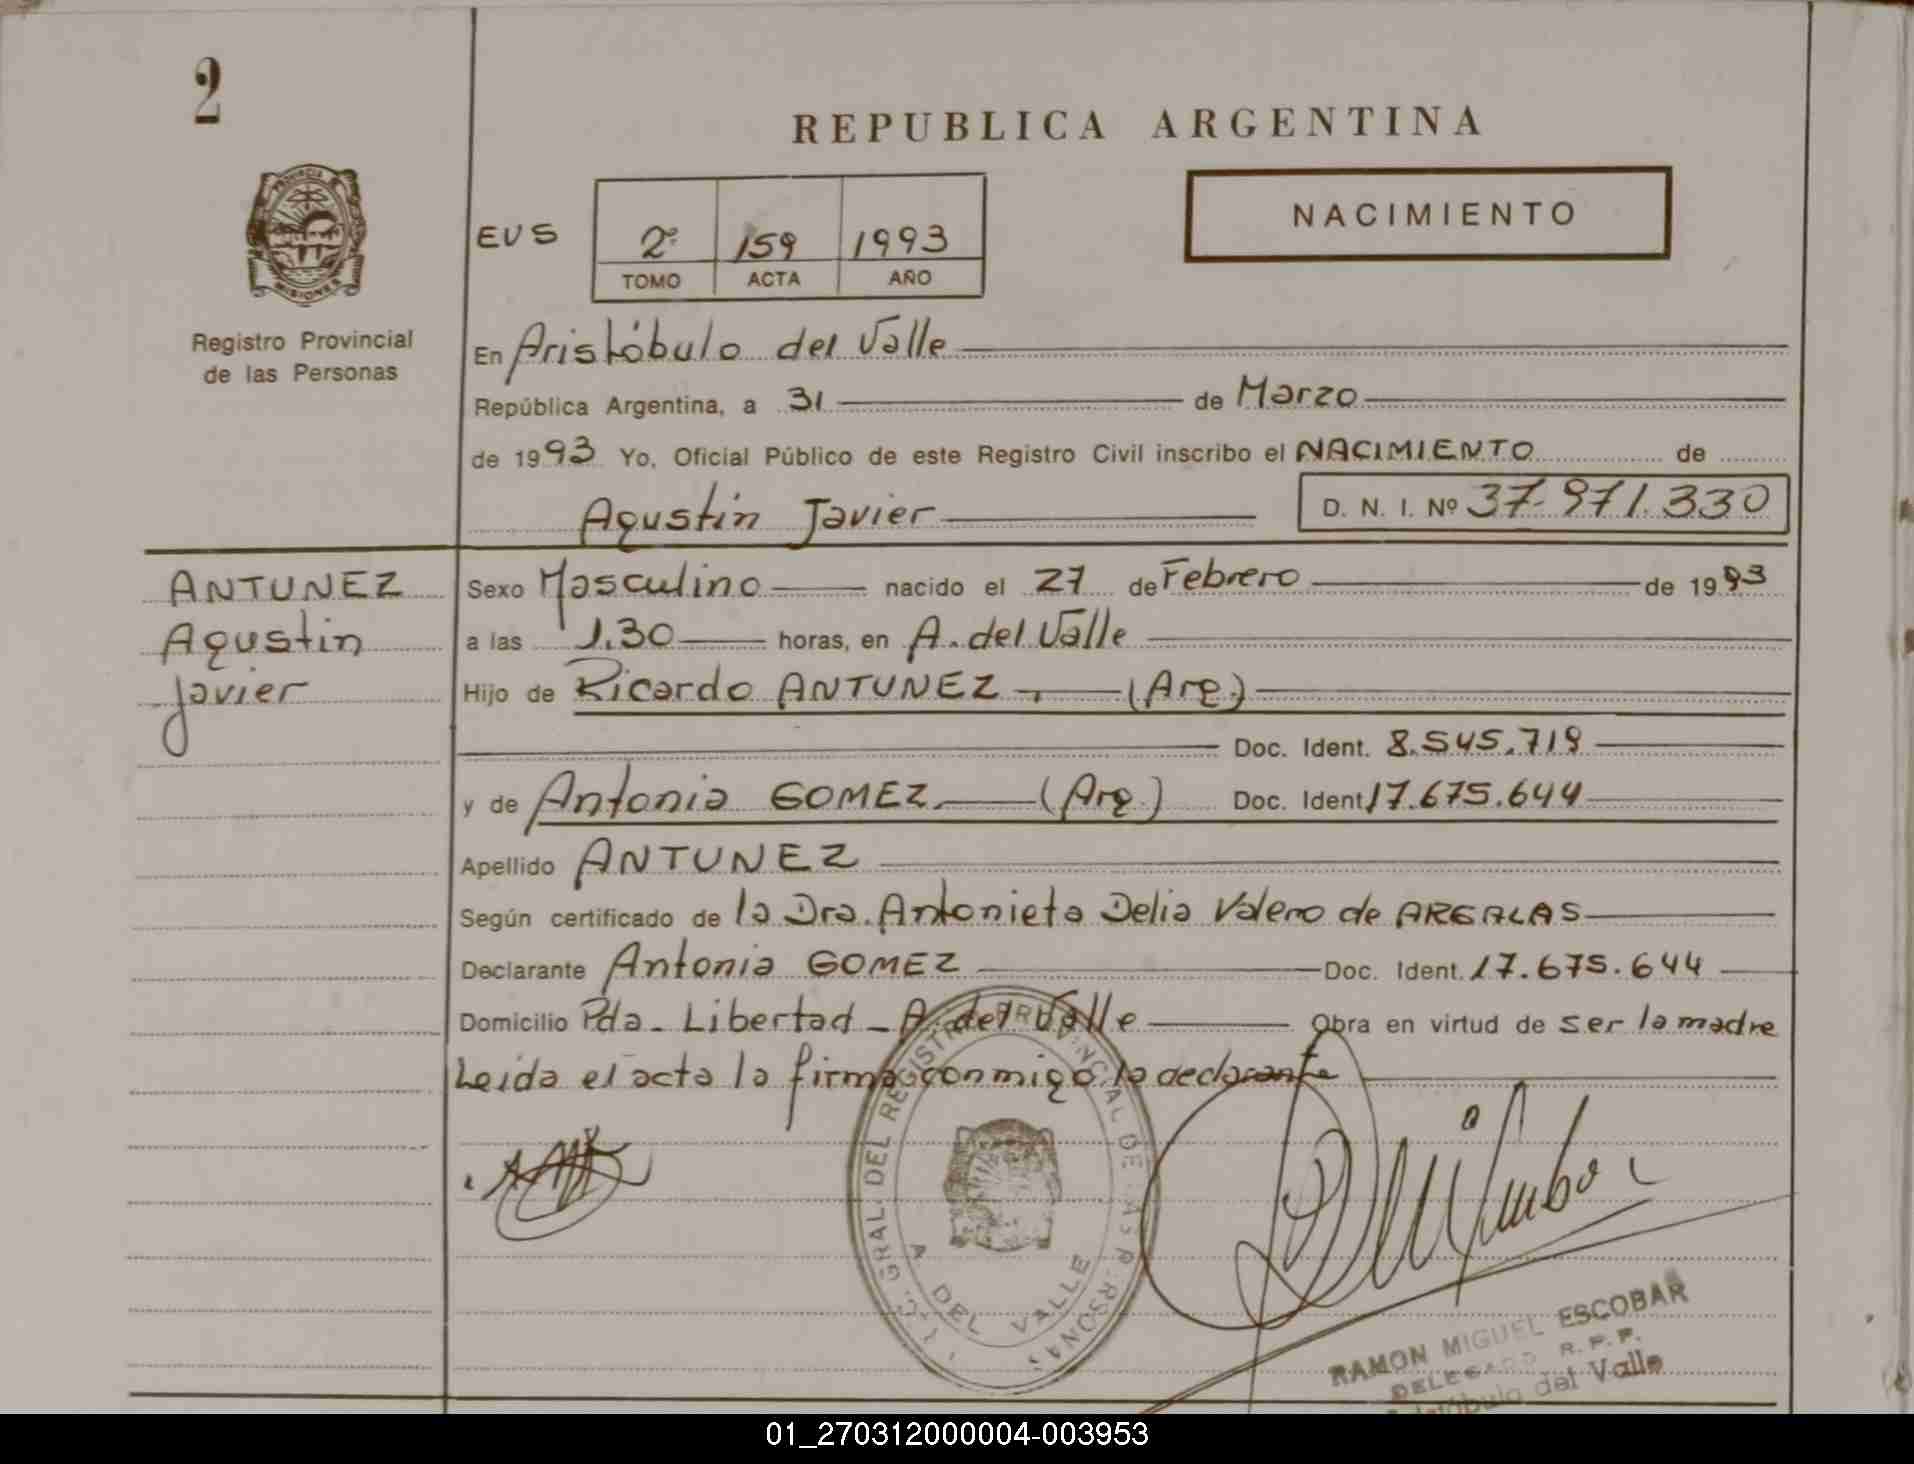 2
REPUBLICA ARGENTINA
NACIMIENTO
EUS
2º 159 1993
TOMO ACTA AÑO
PROVINCIA DE
MISIONES
Registro Provincial
de las Personas
En Aristóbulo del Valle
República Argentina, a 31 de Marzo
de 1993 Yo, Oficial Público de este Registro Civil inscribo el NACIMIENTO de
Agustin Javier D. N. I. Nº 37.971.330
ANTUNEZ
Agustin
Javier
Sexo Masculino nacido el 27 de Febrero de 1993
a las 1.30 horas, en A. del Valle
Hijo de Ricardo ANTUNEZ (Arg.)
Doc. Ident. 8.545.719
y de Antonia GOMEZ (Arg.) Doc. Ident. 17.675.644
Apellido ANTUNEZ
Según certificado de la Dra. Antonieta Delia Valero de ARGALAS
Declarante Antonia GOMEZ Doc. Ident. 17.675.644
Domicilio Pda. Libertad - A. del Valle Obra en virtud de ser la madre
Leida el acta la firma conmigo la declarante
GRAL. DEL REGISTRO PROVINCIAL DE LAS PERSONAS
A. DEL VALLE
RAMON MIGUEL ESCOBAR
DELEGADO R.P.P.
Aristóbulo del Valle
01_270312000004-003953